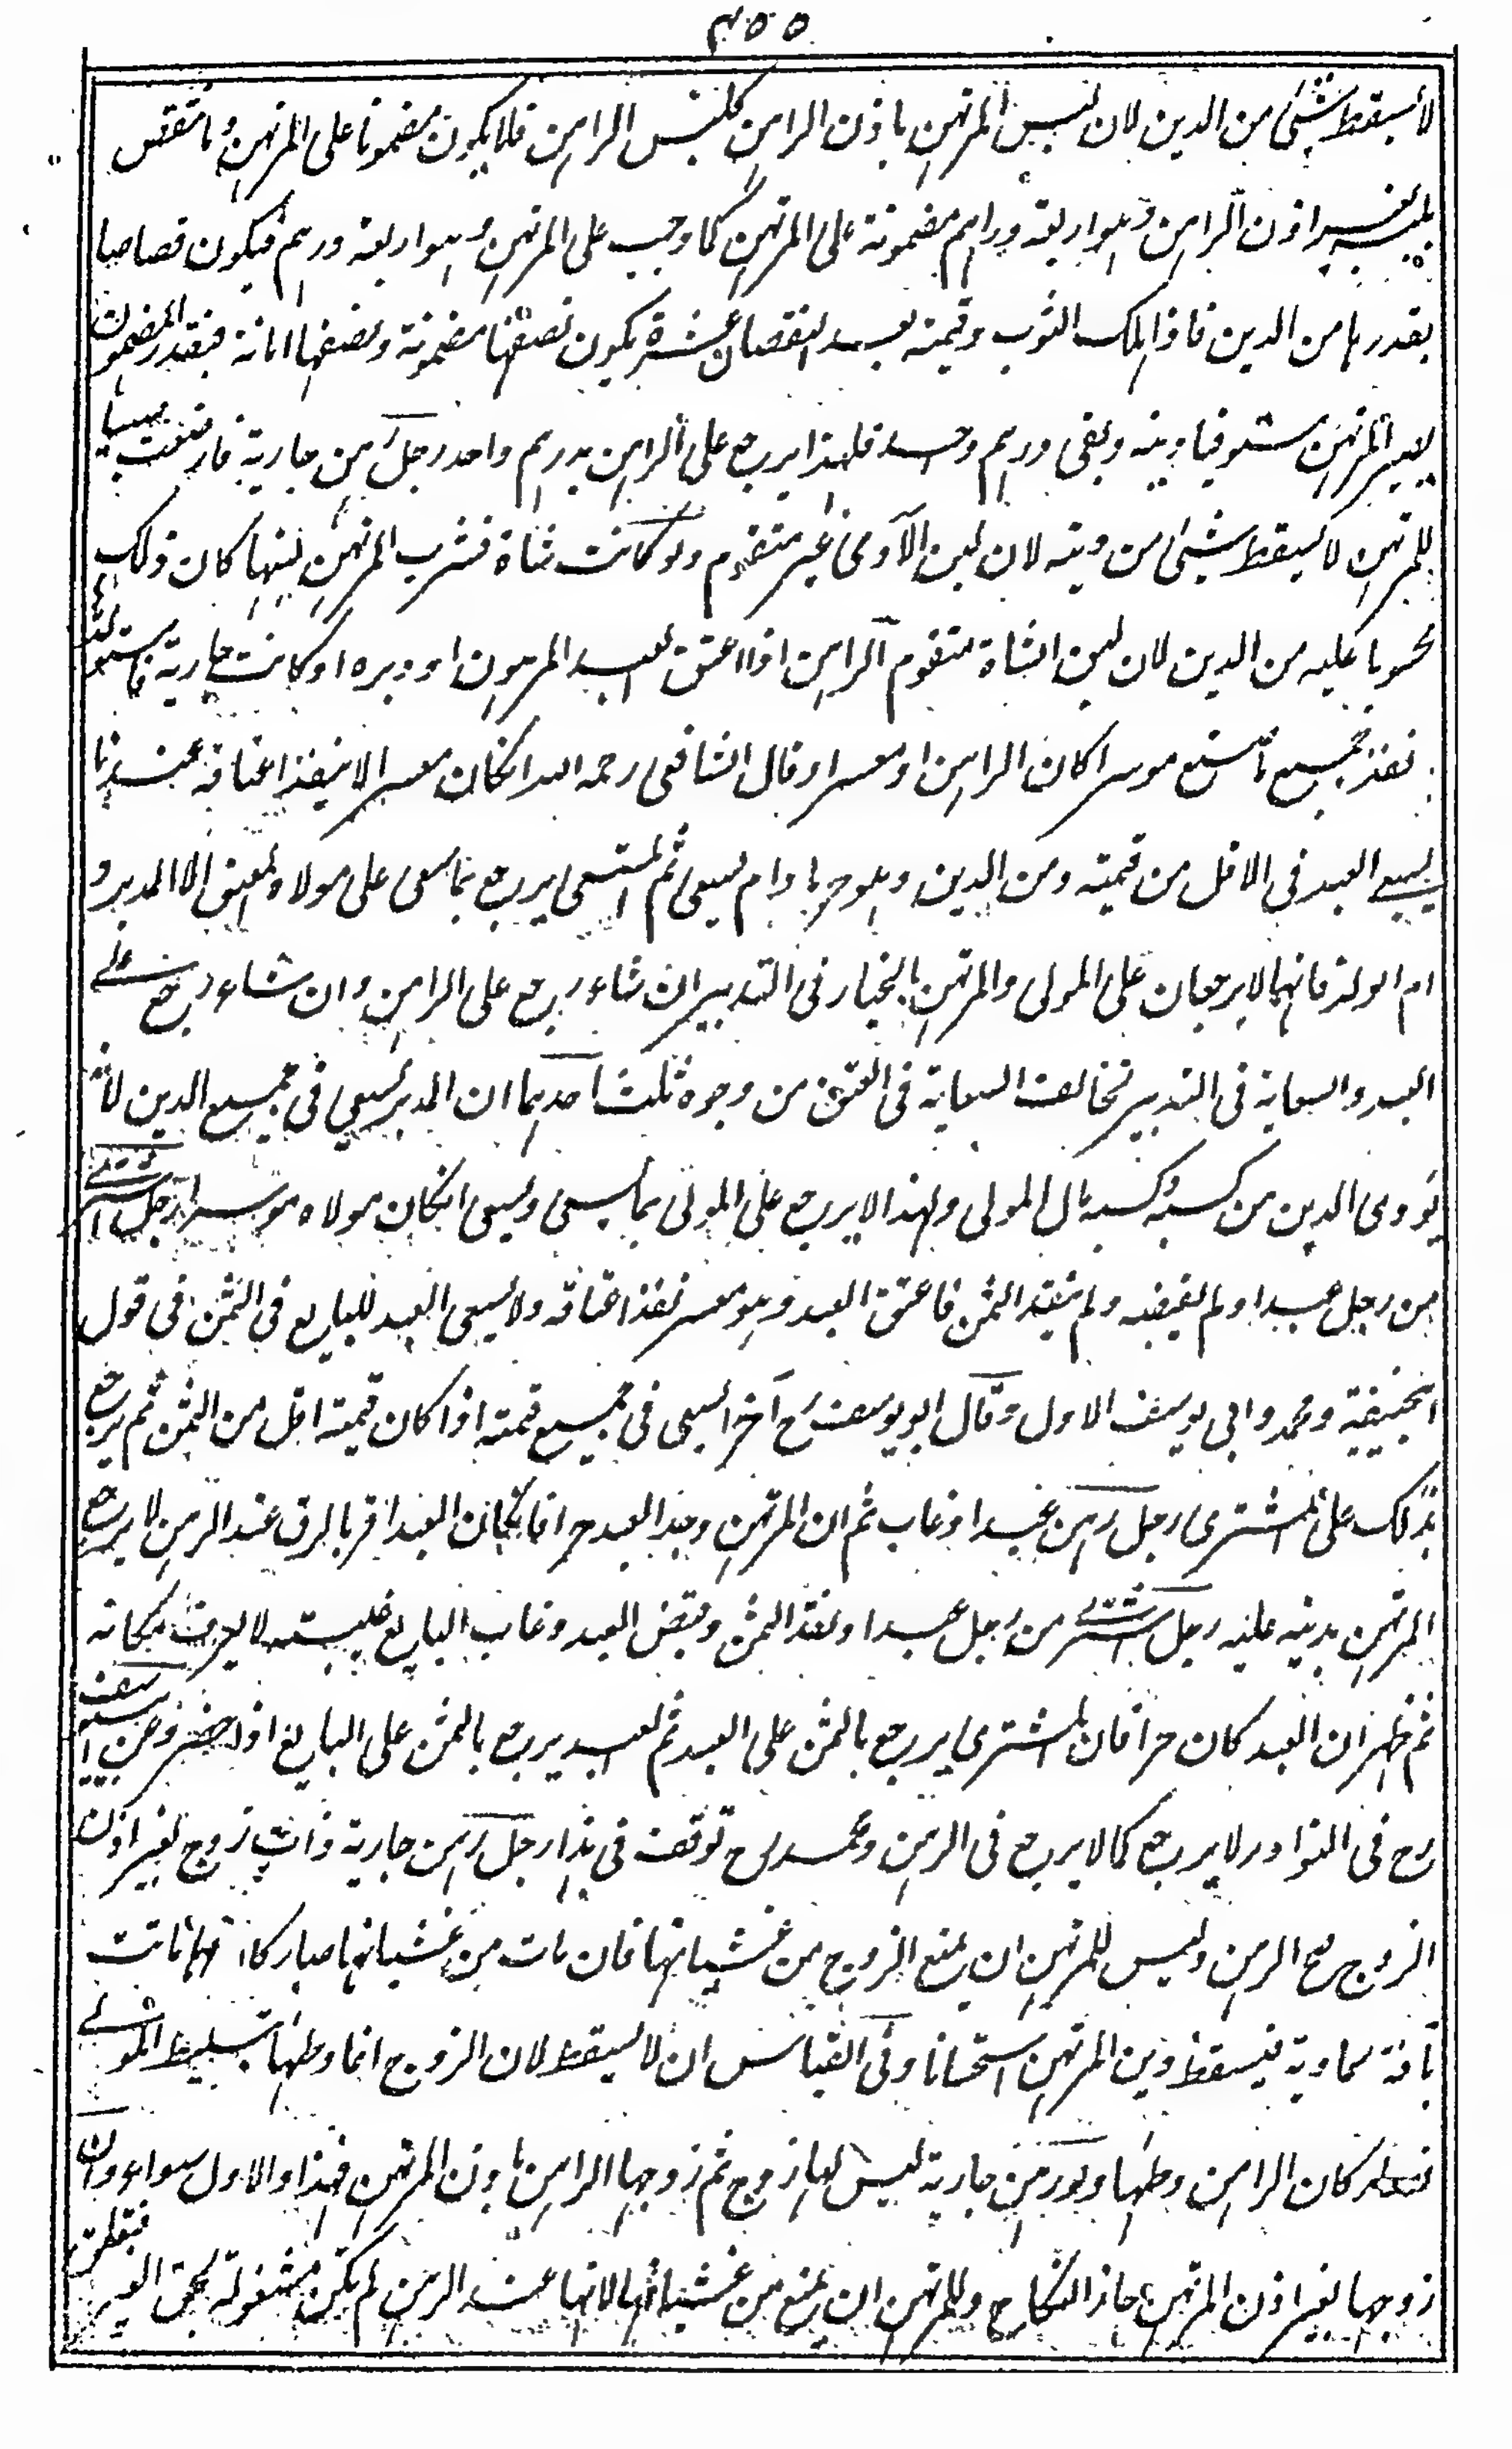 ۴۵۵
لا يسقط شئ من الدين لان لبس المرتهن باذن الراهن كلبس الراهن فلا يكون مضمونا على المرتهن وما نتقص
بلبسه بغير اذن الراهن وهو اربعة دراهم مضمونة على المرتهن كما وجب على المرتهن وهو اربعة درهم فيكون قصاصا
بقدرها من الدين فاذا هلك الثوب وقيمته بعد النقصان عشرة يكون نصفها مضمونة ونصفها امانة فبقدر المضمون
يصير المرتهن مستوفيا دينه وبقى درهم واحد فلهذا يرجع على الراهن بدرهم واحد رجل رهن جارية فارضعت صبيا
للمرتهن لا يسقط شئ من دينه لان لبن الآدمى غير متقوم ولو كانت شاة فشرب المرتهن لبنها كان ذلك
محسوبا عليه من الدين لان لبن الشاة متقوم الراهن اذا اعتق العبد المرهون او دبره او كانت جارية فاستولدها
نفذ جميع ما صنع موسرا كان الراهن او معسرا وقال الشافعى رحمه الله ان كان معسرا لا ينفذ اعتاقه عندنا
يسعى العبد فى الاقل من قيمته ومن الدين وهو حر ما دام يسعى ثم المستسعى يرجع بما سعى على مولاه المعتق الا المدبر و
ام الولد فانهما لا يرجعان على المولى والمرتهن بالخيار فى التدبير ان شاء رجع على الراهن وان شاء رجع على
العبد والسعاية فى التدبير تخالف السعاية فى العتق من وجوه ثلث احدها ان المدبر يسعى فى جميع الدين لانه
يؤدى الدين من كسبه وكسبه مال المولى ولهذا لا يرجع على المولى بما يسعى ويسعى ان كان مولاه موسرا رجل اشترى
من رجل عبدا ولم يقبضه ولم ينقد الثمن فاعتق العبد وهو معسر نفذ اعتاقه ولا يسعى العبد للبايع فى الثمن فى قول
ابى حنيفة ومحمد وابى يوسف الاول وقال ابو يوسف رح آخرا يسعى فى جميع قيمته اذا كان قيمته اقل من الثمن ثم يرجع
بذلك على المشترى رجل رهن عبدا وغاب ثم ان المرتهن وجد العبد حرا فان كان العبد اقر بالرق عند الرهن لا يرجع
المرتهن بدينه عليه رجل اشترى من رجل عبدا ونقد الثمن وقبض العبد وغاب البايع غيبة لا يعرف مكانه
ثم ظهر ان العبد كان حرا فان المشترى يرجع بالثمن على العبد ثم العبد يرجع بالثمن على البايع اذا حضر وعن ابى يوسف
رح فى النوادر لا يرجع كما لا يرجع فى الرهن ومحمد رح توقف فى هذا رجل رهن جارية ذات زوج بغير اذن
الزوج صح الرهن وليس للمرتهن ان يمنع الزوج من غشيانها فان مات من غشيانها صار كانها ماتت
بآفة سماوية فيسقط دين المرتهن استحسانا وفى القياس ان لا يسقط لان الزوج انما وطئها بتسليط المولى
فصار كان الراهن وطئها ولو رهن جارية ليس لها زوج ثم زوجها الراهن باذن المرتهن فهذا والاول سواء وان
زوجها بغير اذن المرتهن جاز النكاح وللمرتهن ان يمنع من غشيانها لانها عند الرهن لم تكن مشغولة بحق الغير فتعلق